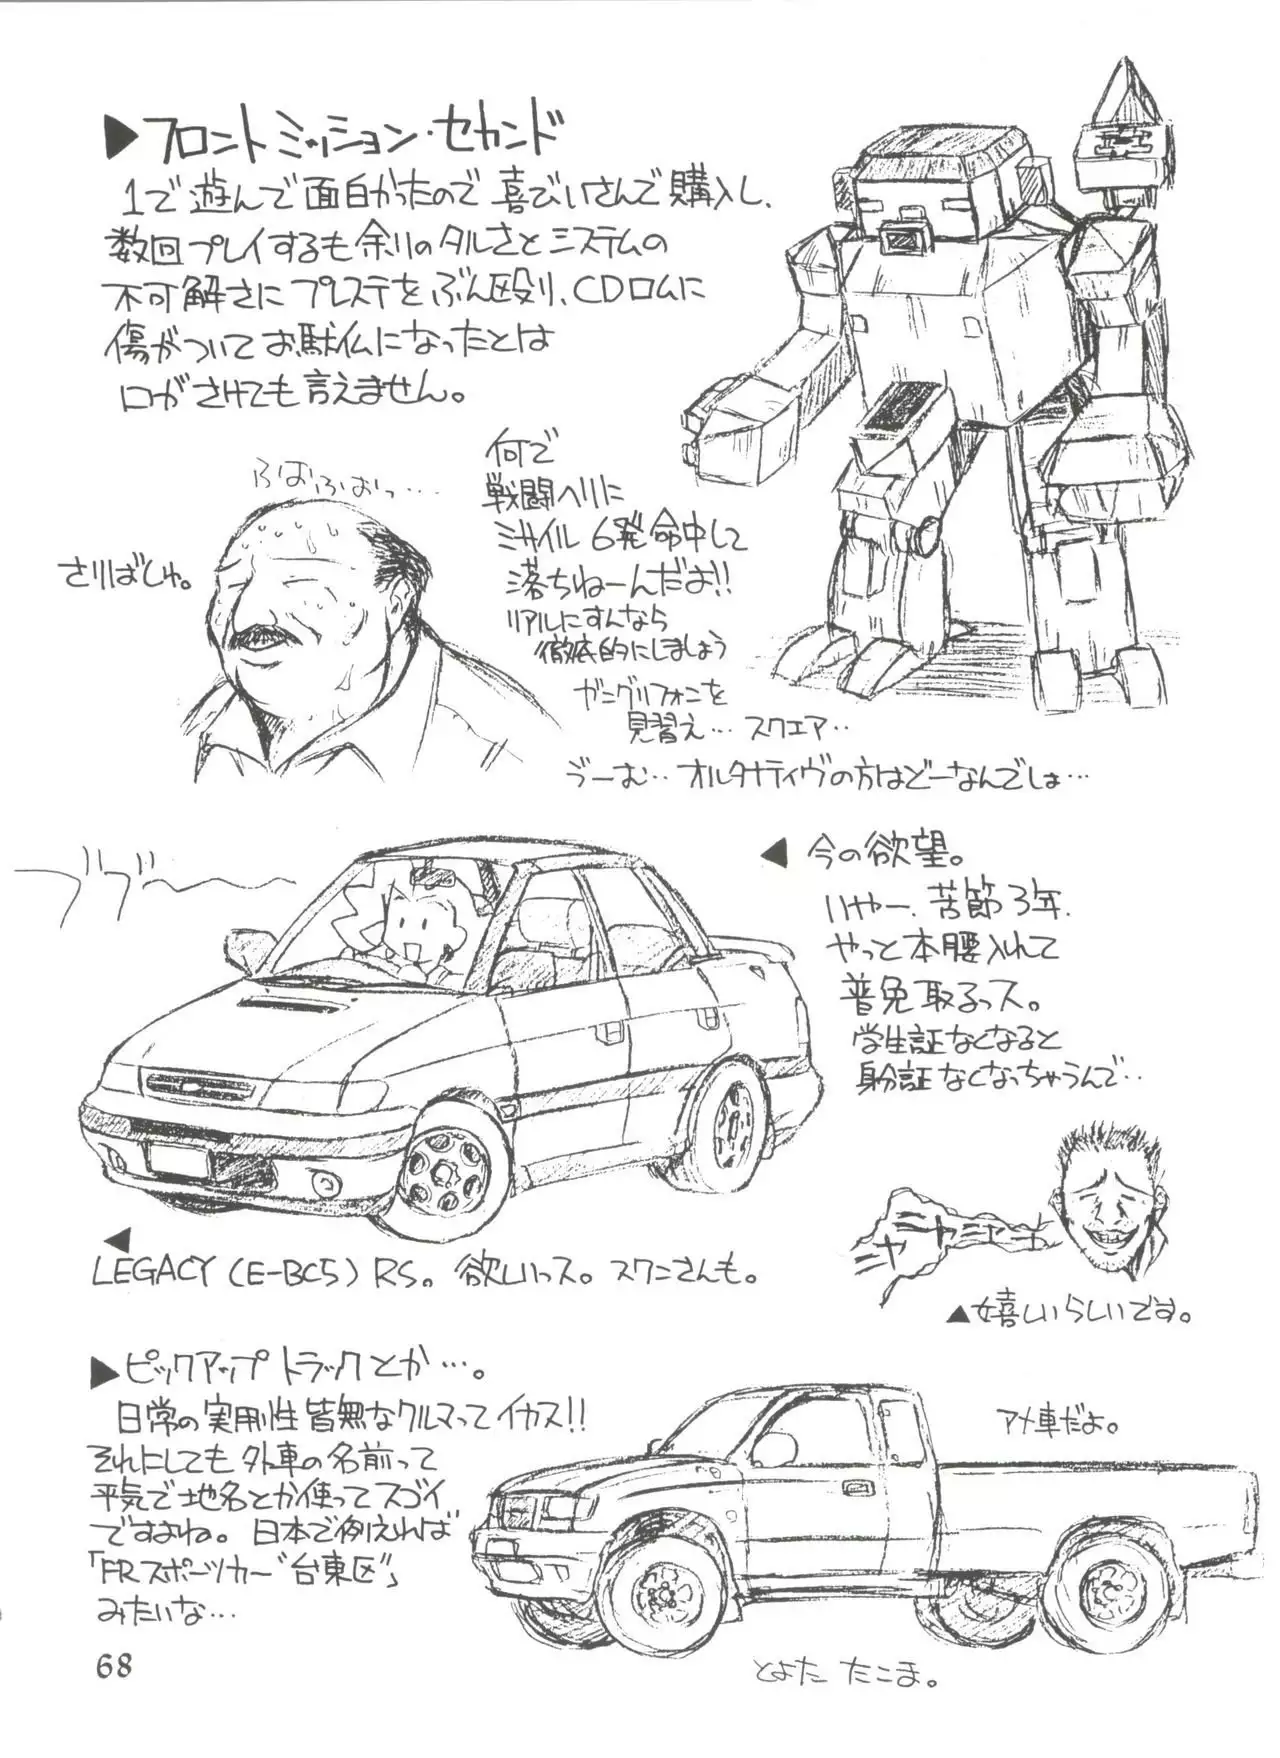 ▶フロントミッション・セカンド
1で遊んで面白かったので喜びいさんで購入し、
数回プレイするも余りのタルさとシステムの
不可解さにプレステをぶん殴り、CDロムに
傷がついてお駄仏になったとは
口がさけても言えません。
ふばふばっ…
さりばしゅ。
何で
戦闘ヘリに
ミサイル6発命中して
落ちねーんだよ!!
リアルにすんなら
徹底的にしましょう
ガングリフォンを
見習え…スクエア‥
ゔーむ‥オルタナティヴの方はどーなんでしょ…
ブブーー
◀今の欲望。
いやー、苦節3年、
やっと本腰入れて
普免取るっス。
学生証なくなると
身分証なくなっちゃうんで‥
ニヤニヤ
▲嬉しいらしいです。
◀
LEGACY(E-BC5)RS。欲しいっス。スワニさんも。
▶ピックアップトラックとか…。
日常の実用性皆無なクルマってイカス!!
それにしても外車の名前って
平気で地名とか使ってスゴイ
ですよね。日本で例えれば
「FRスポーツカー"台東区"」
みたいな…
アメ車だよ。
とよた たこま。
68